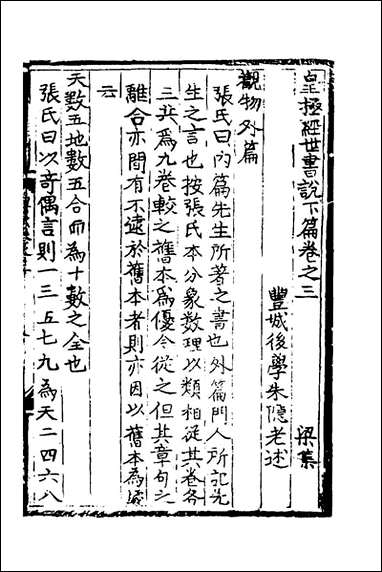 皇極經世書說下篇卷之三　梁集
豐城後學朱隱老述
觀物外篇
張氏曰內篇先生所著之書也外篇門人所記先
生之言也按張氏本分象數理以類相從其卷各
三共爲九卷較之舊本爲優今從之但其章句之
離合亦間有不逮於舊本者則亦因以舊本爲
云
天數五地數五合而為十數之全也
張氏曰以奇偶言則一三五七九為天二四六八